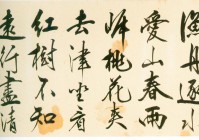 漁舟逐水
愛山春兩
岸桃花夾
去津坐看
紅樹不知
遠行盡清